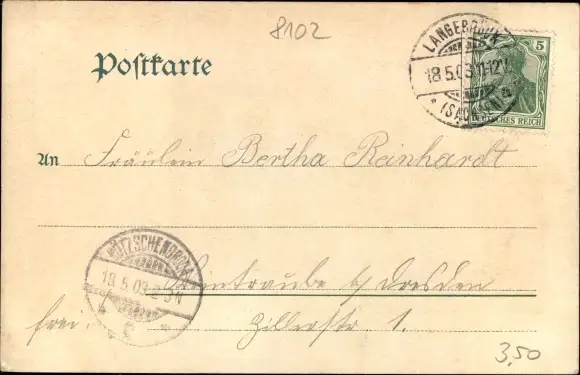 8102
Postkarte
LANGEBRÜCK
18.5.03.11-12V.
* (SACHSEN) a
5
DEUTSCHES REICH
An Fräulein Bertha Reinhardt
KÖTZSCHENBRODA
18.5.03.2-3N
Weintraube b/ Dresden
frei. Zillerstr. 1.
3,50